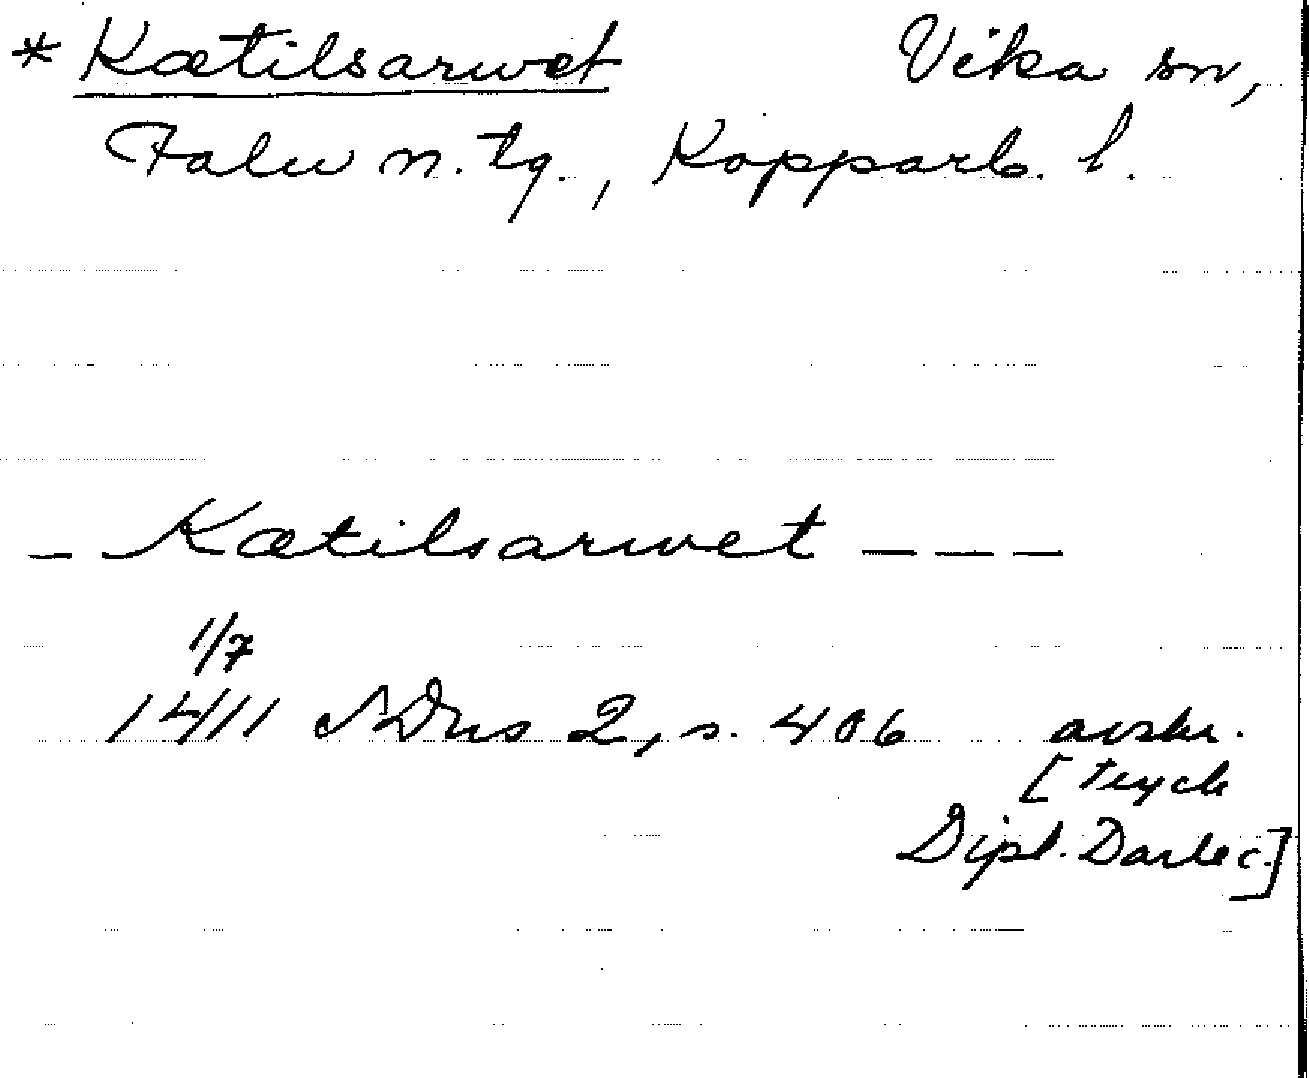 * Kætilsarwet Vika sn,
Falu n. tg., Kopparb. l.
– – Kætilsarwet – – –
1/7
1411 SDns 2, s. 406 avskr.
[tryck
Dipl. Darlec.]